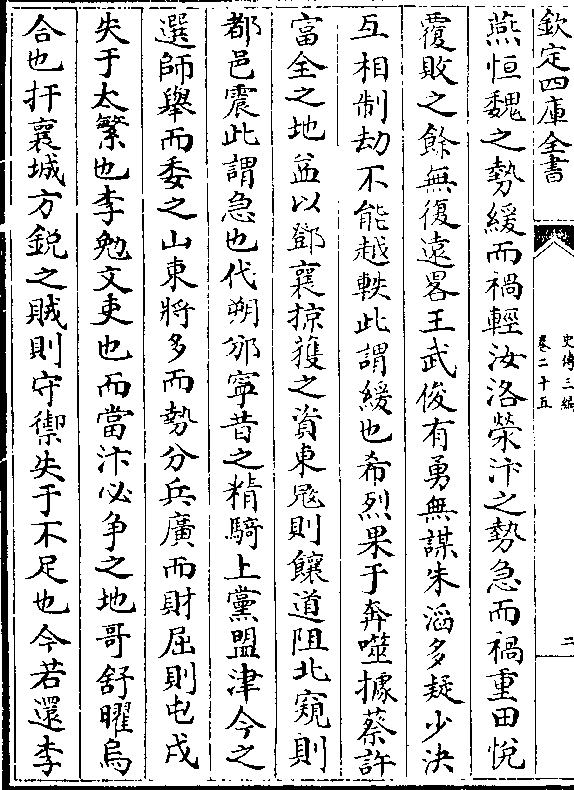 欽定四庫全書
史傳三編
卷二十五
二
燕恒魏之勢緩而禍輕汝洛滎汴之勢急而禍重田悅
覆敗之餘無復遠畧王武俊有勇無謀朱滔多疑少決
互相制劫不能越軼此謂緩也希烈果于奔噬據蔡許
富全之地益以鄧襄掠獲之資東冦則饟道阻北窺則
都邑震此謂急也代朔邠寧昔之精騎上黨盟津今之
選師舉而委之山東將多而勢分兵廣而財屈則屯戍
失于太繁也李勉文吏也而當汴必争之地哥舒曜烏
合也扞襄城方鋭之賊則守禦失于不足也今若還李